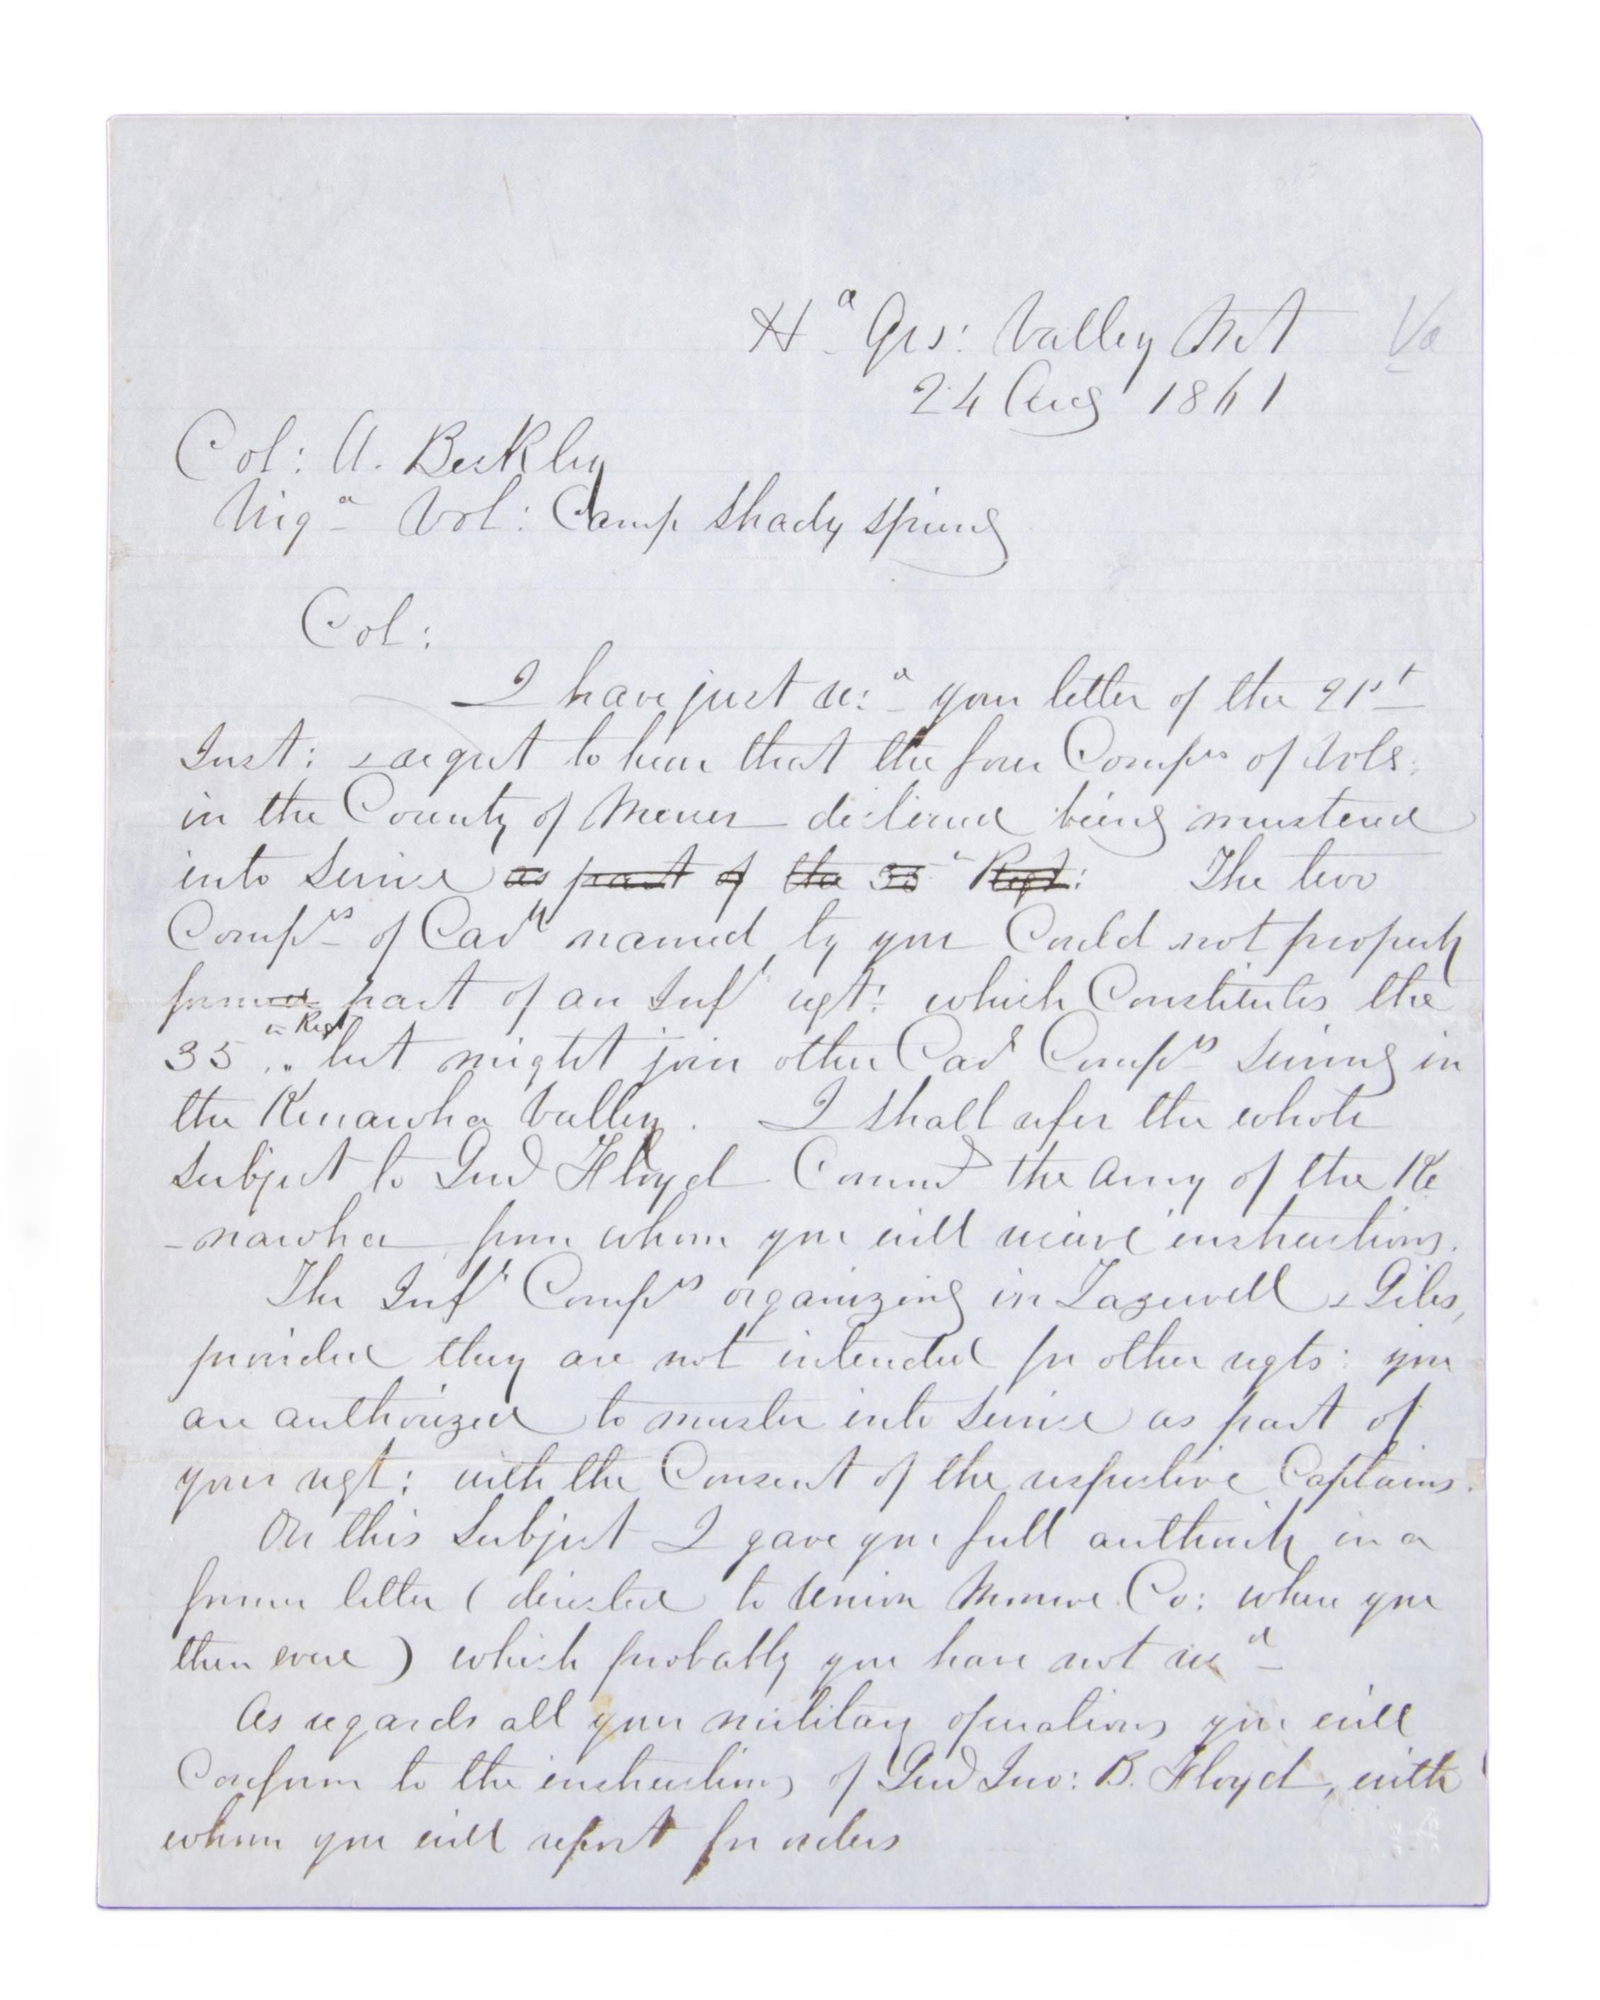 Hd Qrs: Valley Mt Va
24 Aug 1861
Col: A. Beckley
Virga Vol: Camp Shady Spring
Col:
I have just recd your letter of the 21st
Inst: & regret to hear that the four Comps of Vols:
in the County of Mercer declined being mustered
into Service as part of the 35 Regt: The two
Comps of Cavy named by you Could not properly
formed part of an Infy regt: which Constitutes the
35 " Regt but might join other Cavy Comps serving in
the Kenawha Valley. I shall refer the whole
Subject to Genl Floyd Commd the Army of the Ke
-nawha from whom you will receive instructions.
The Infy Comps organizing in Tazewell & Giles,
provided they are not intended for other regts: you
are authorized to muster into Service as part of
your regt: with the Consent of the respective Captains.
On this Subject I gave you full authority in a
former letter (directed to Union Monroe Co: where you
then were) which probably you have not recd
As regards all your military operations you will
Conform to the instructions of Genl Jno: B. Floyd, with
whom you will report for orders